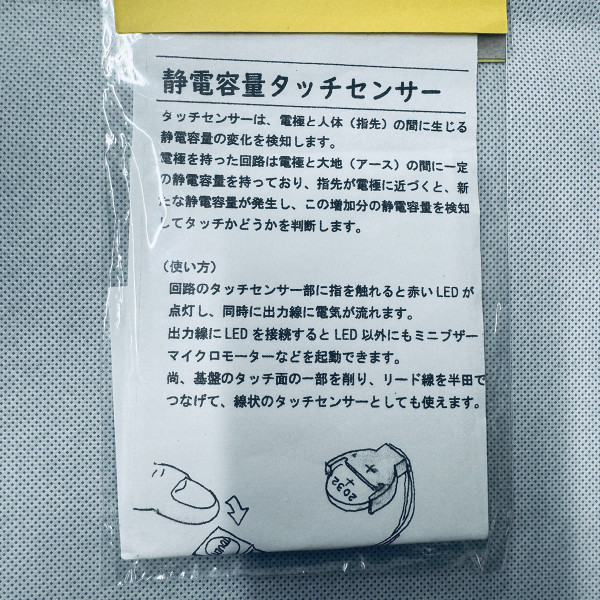 静電容量タッチセンサー
タッチセンサーは、電極と人体（指先）の間に生じる
静電容量の変化を検知します。
電極を持った回路は電極と大地（アース）の間に一定
の静電容量を持っており、指先が電極に近づくと、新
たな静電容量が発生し、この増加分の静電容量を検知
してタッチかどうかを判断します。
（使い方）
回路のタッチセンサー部に指を触れると赤いLEDが
点灯し、同時に出力線に電気が流れます。
出力線にLEDを接続するとLED以外にもミニブザー
マイクロモーターなどを起動できます。
尚、基盤のタッチ面の一部を削り、リード線を半田で
つなげて、線状のタッチセンサーとしても使えます。
+
2032